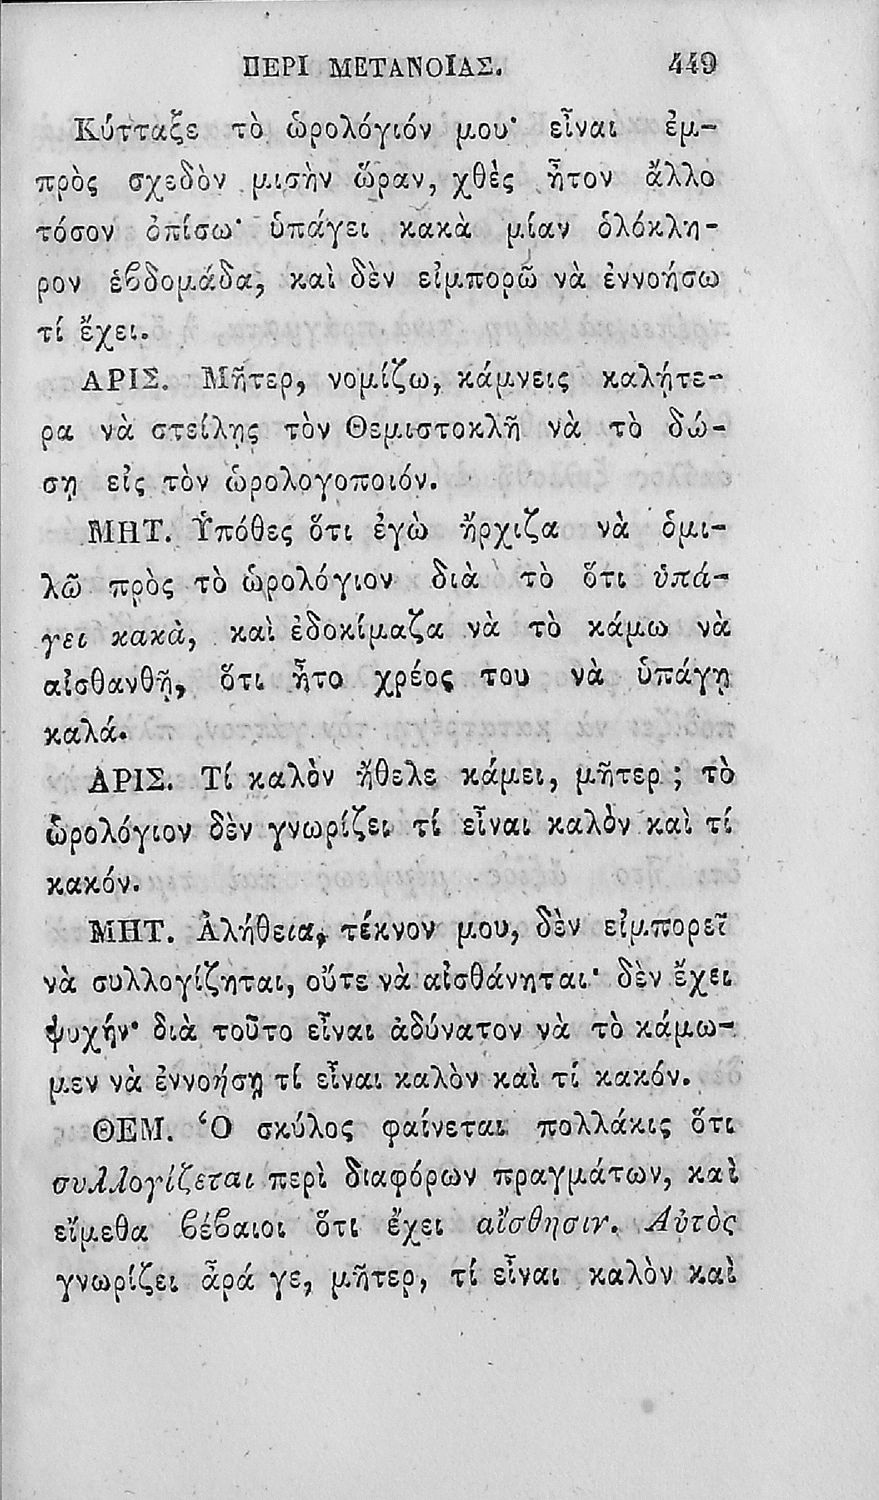 ΠΕΡΙ ΜΕΤΑΝΟΙΑΣ. 449
Κύτταξε τὸ ὡρολόγιόν μου· εἶναι ἐμ-
πρὸς σχεδὸν μισὴν ὥραν, χθὲς ἦτον ἄλλο
τόσον ὀπίσω· ὑπάγει κακὰ μίαν ὁλόκλη-
ρον ἑβδομάδα, καὶ δὲν εἰμπορῶ νὰ ἐννοήσω
τί ἔχει.
ΑΡΙΣ. Μῆτερ, νομίζω, κάμνεις καλήτε-
ρα νὰ στείλῃς τὸν Θεμιστοκλῆ νὰ τὸ δώ-
σῃ εἰς τὸν ὡρολογοποιόν.
ΜΗΤ. Ὑπόθες ὅτι ἐγὼ ἤρχιζα νὰ ὁμι-
λῶ πρὸς τὸ ὡρολόγιον διὰ τὸ ὅτι ὑπά-
γει κακὰ, καὶ ἐδοκίμαζα νὰ τὸ κάμω νὰ
αἰσθανθῇ, ὅτι ἦτο χρέος του νὰ ὑπάγῃ
καλά.
ΑΡΙΣ. Τί καλὸν ἤθελε κάμει, μῆτερ ; τὸ
ὡρολόγιον δὲν γνωρίζει τί εἶναι καλὸν καὶ τί
κακόν.
ΜΗΤ. Ἀλήθεια, τέκνον μου, δὲν εἰμπορεῖ
νὰ συλλογίζηται, οὔτε νὰ αἰσθάνηται· δὲν ἔχει
ψυχήν· διὰ τοῦτο εἶναι ἀδύνατον νὰ τὸ κάμω-
μεν νὰ ἐννοήσῃ τί εἶναι καλὸν καὶ τί κακόν.
ΘΕΜ. Ὁ σκύλος φαίνεται πολλάκις ὅτι
συλλογίζεται περὶ διαφόρων πραγμάτων, καὶ
εἴμεθα βέβαιοι ὅτι ἔχει αἴσθησιν. Αὐτὸς
γνωρίζει ἆρά γε, μῆτερ, τί εἶναι καλὸν καὶ